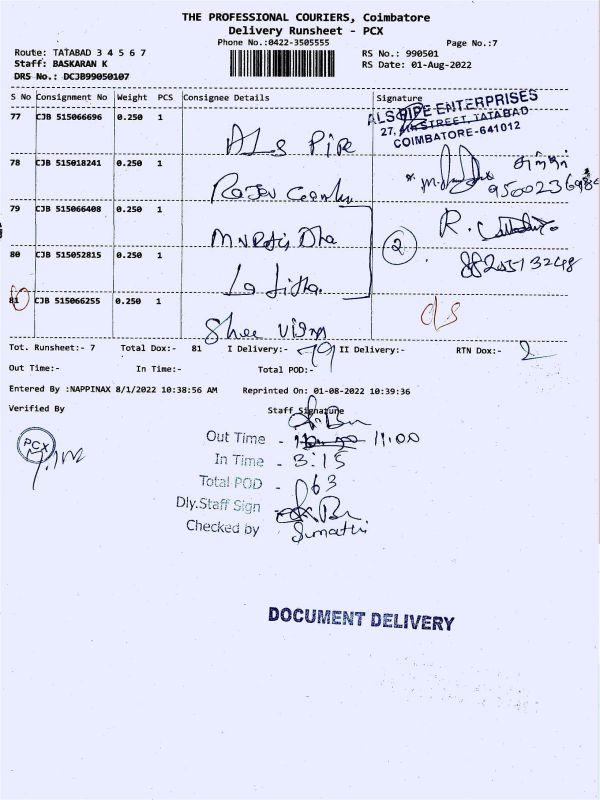 THE PROFESSIONAL COURIERS, Coimbatore
Delivery Runsheet - PCX
Phone No.:0422-3505555 Page No.:7
Route: TATABAD 3 4 5 6 7 RS No.: 990501
Staff: BASKARAN K RS Date: 01-Aug-2022
DRS No.: DCJB99050107
S No Consignment No Weight PCS Consignee Details Signature
77 CJB 515066696 0.250 1 ALS Pipe ALS PIPE ENTERPRISES
27, STREET, TATABAD
COIMBATORE-641012
78 CJB 515018241 0.250 1
79 CJB 515066408 0.250 1 R.
80 CJB 515052815 0.250 1 Lalitha 2
81 CJB 515066255 0.250 1 Shee d/s
Tot. Runsheet:- 7 Total Dox:- 81 I Delivery:- 79 II Delivery:- RTN Dox:- 2
Out Time:- In Time:- Total POD:-
Entered By :NAPPINAX 8/1/2022 10:38:56 AM Reprinted On: 01-08-2022 10:39:36
Verified By Staff Signature
PCX
Out Time - 11:00
In Time - 3:15
Total POD - 63
Dly.Staff Sign
Checked by Sumathi
DOCUMENT DELIVERY